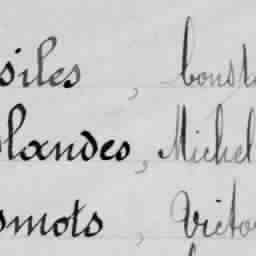 siles, Const
landes, Michel
smots, Victo